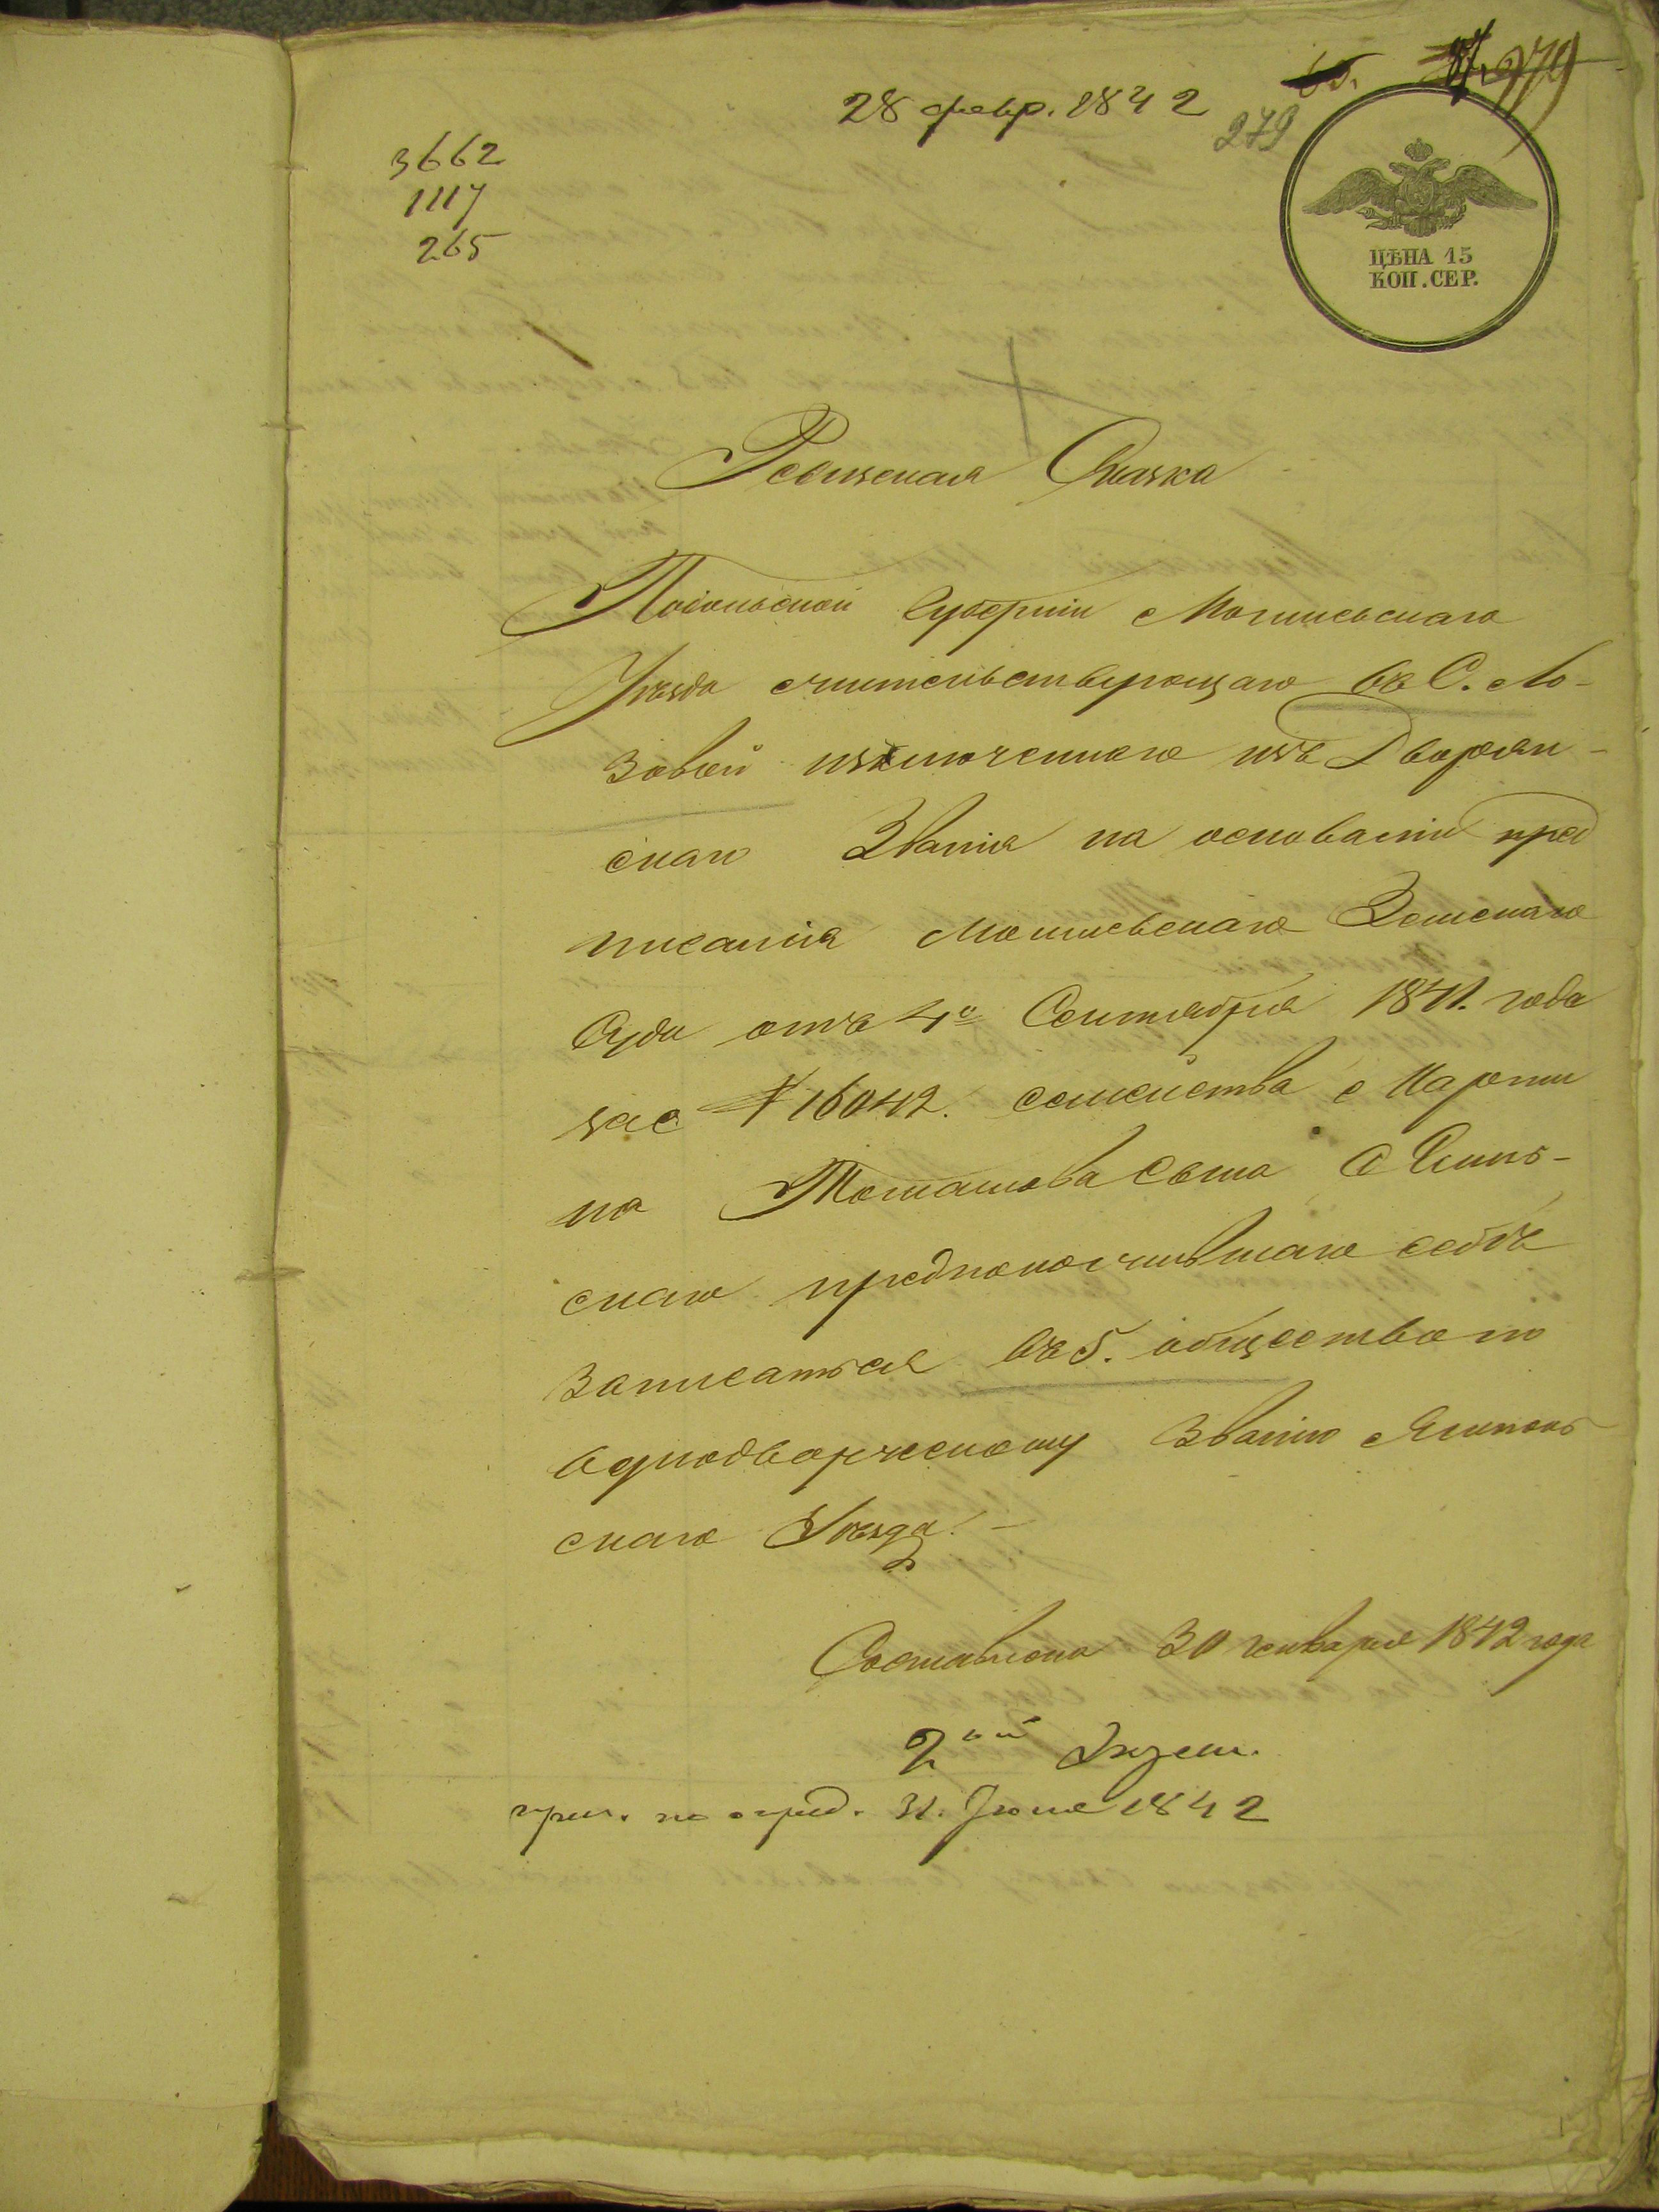 28 февр. 1842
279
3662
1117
265
ЦѢНА 15
КОП. СЕР.
Ревизская Сказка
Подольской Губерніи Могилевскаго
Уѣзда жительствующаго въ С. Ло-
зовой изключеннаго изъ Дворян-
скаго Званія на основаніи пред
писанія Могилевскаго Земскаго
Суда отъ 4го Сентября 1841. года
за № 16042. семейства Марти
на Томашова Сына
скаго предположившаго себѣ
записаться въ 5. общество по
однодворческому Званію Ямполь
скаго Уѣзда. –
Составлена 30 января 1842 года
2ой Экзем.
при. по опред. 31. Іюля 1842